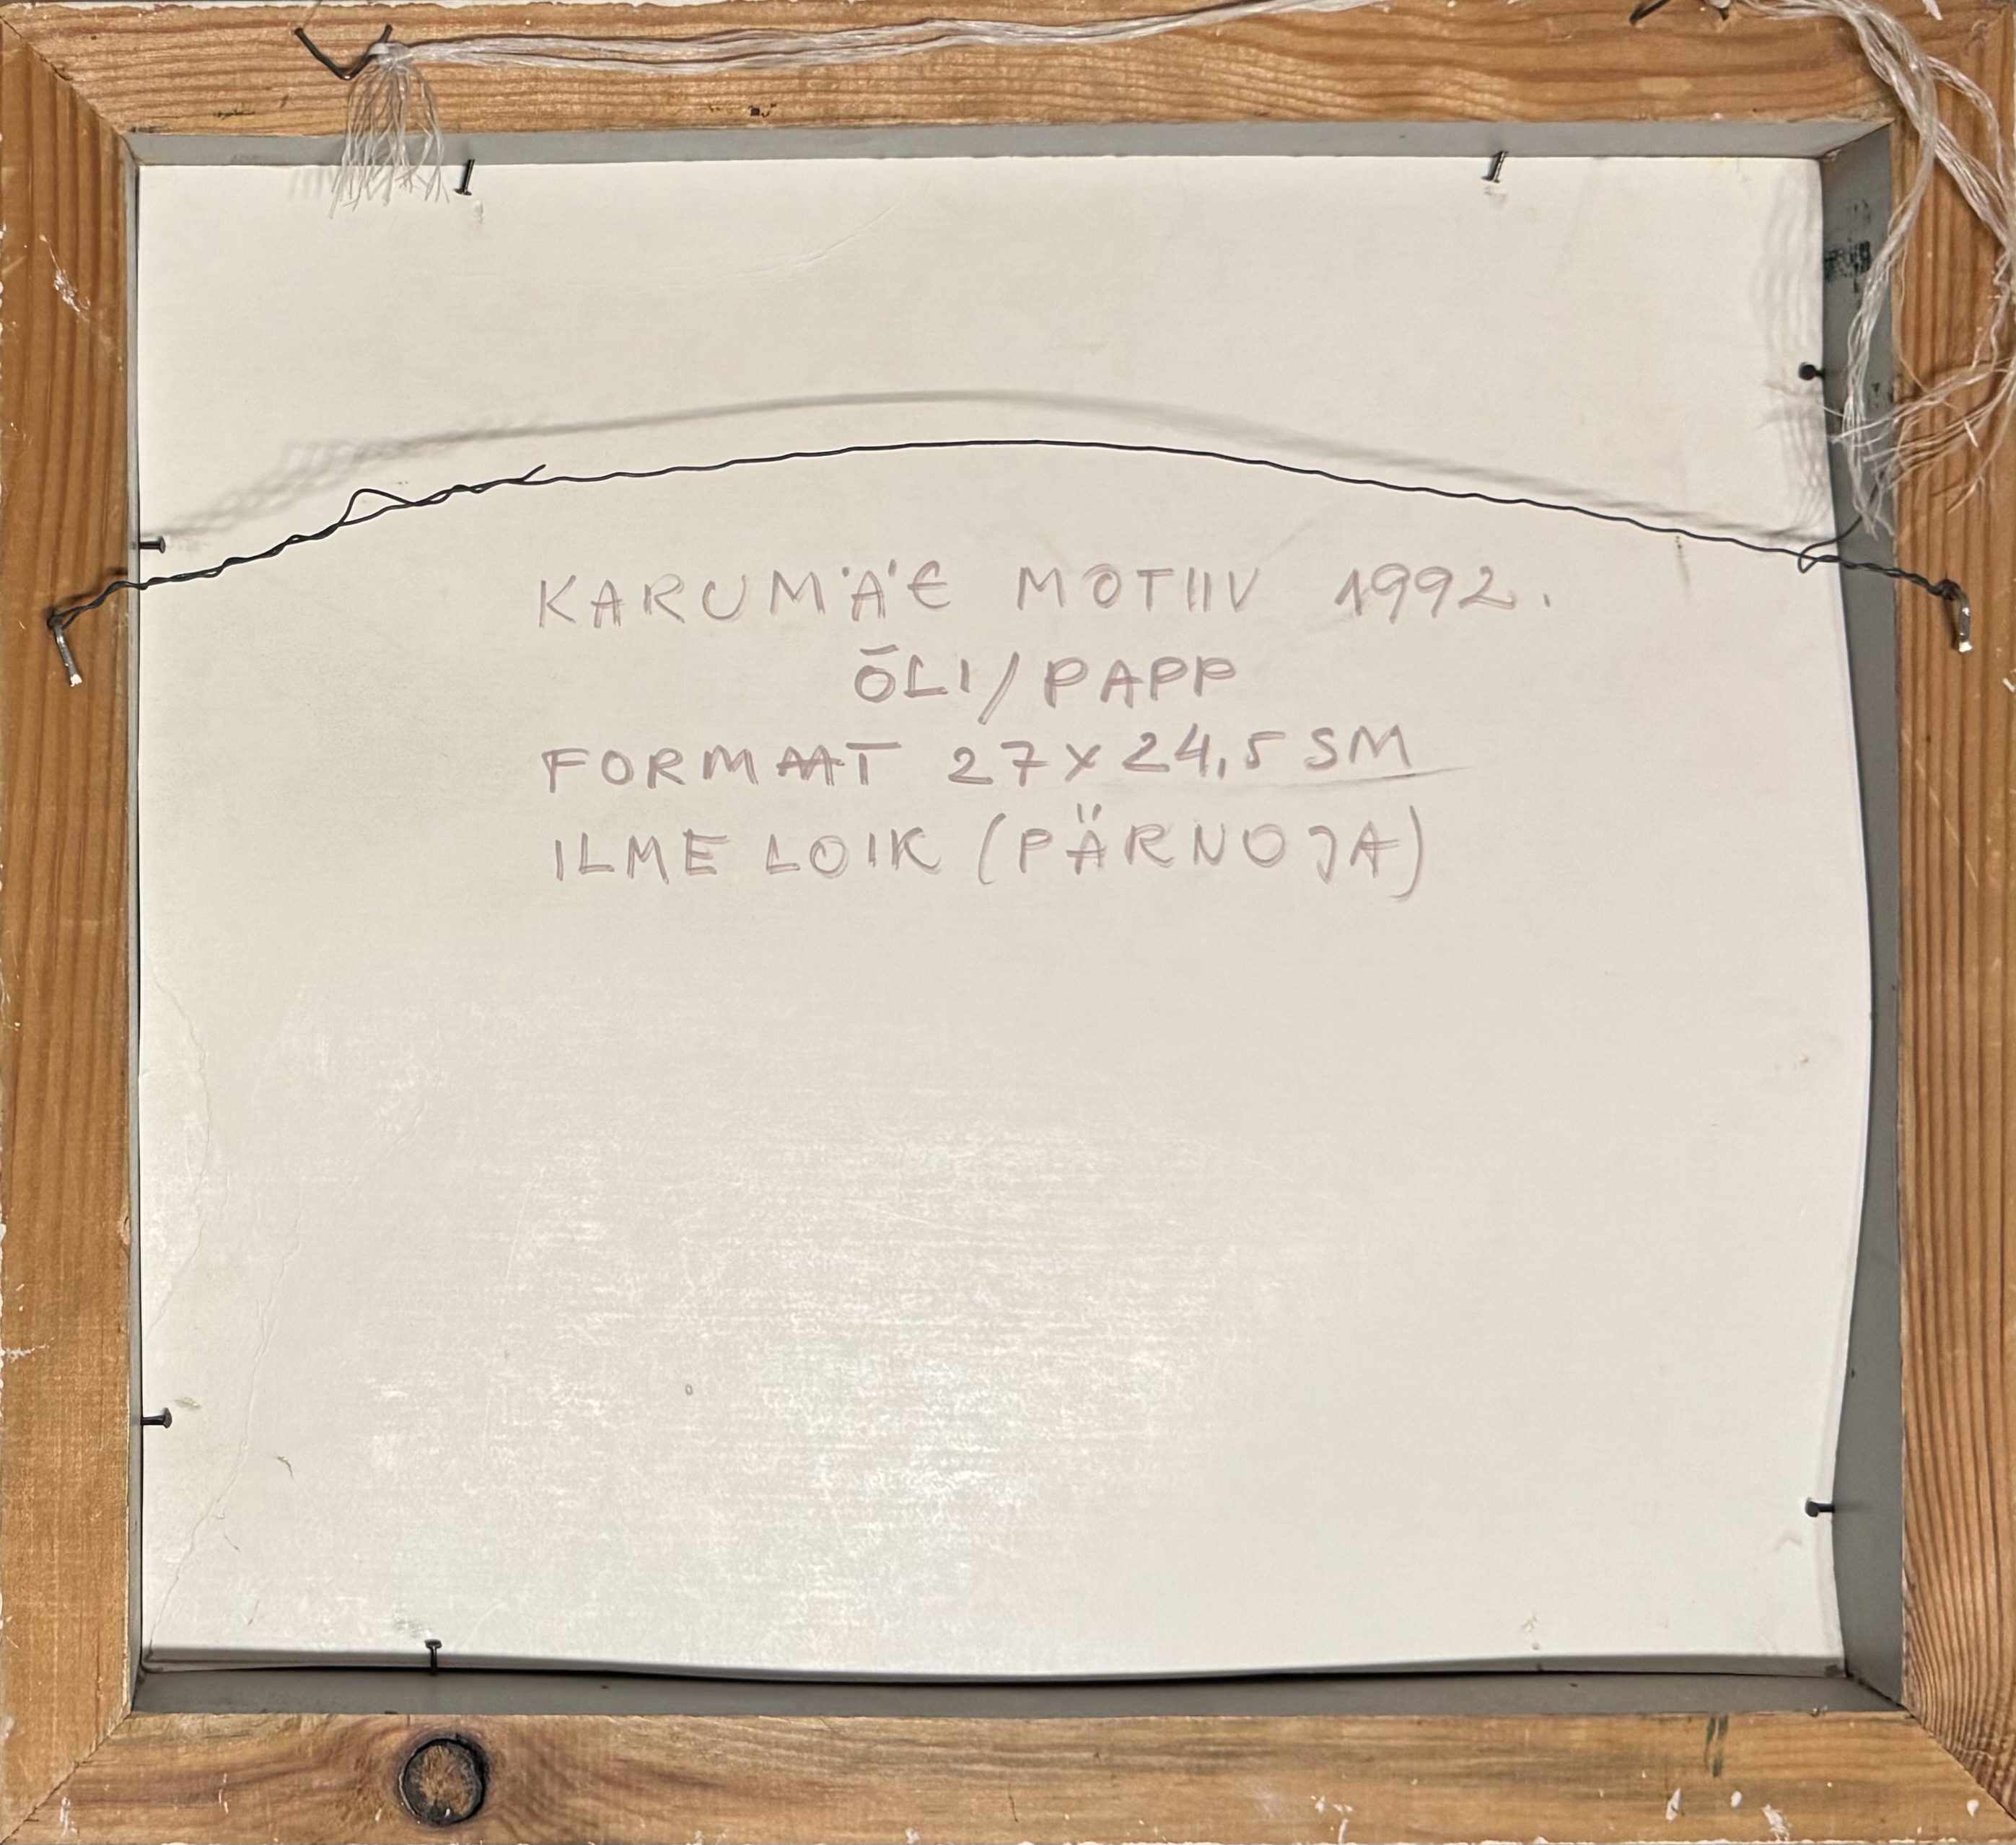 KARUMÄE MOTIIV 1992.
ÕLI/PAPP
FORMAAT 27x24,5 SM
ILME LOIK (PÄRNOJA)